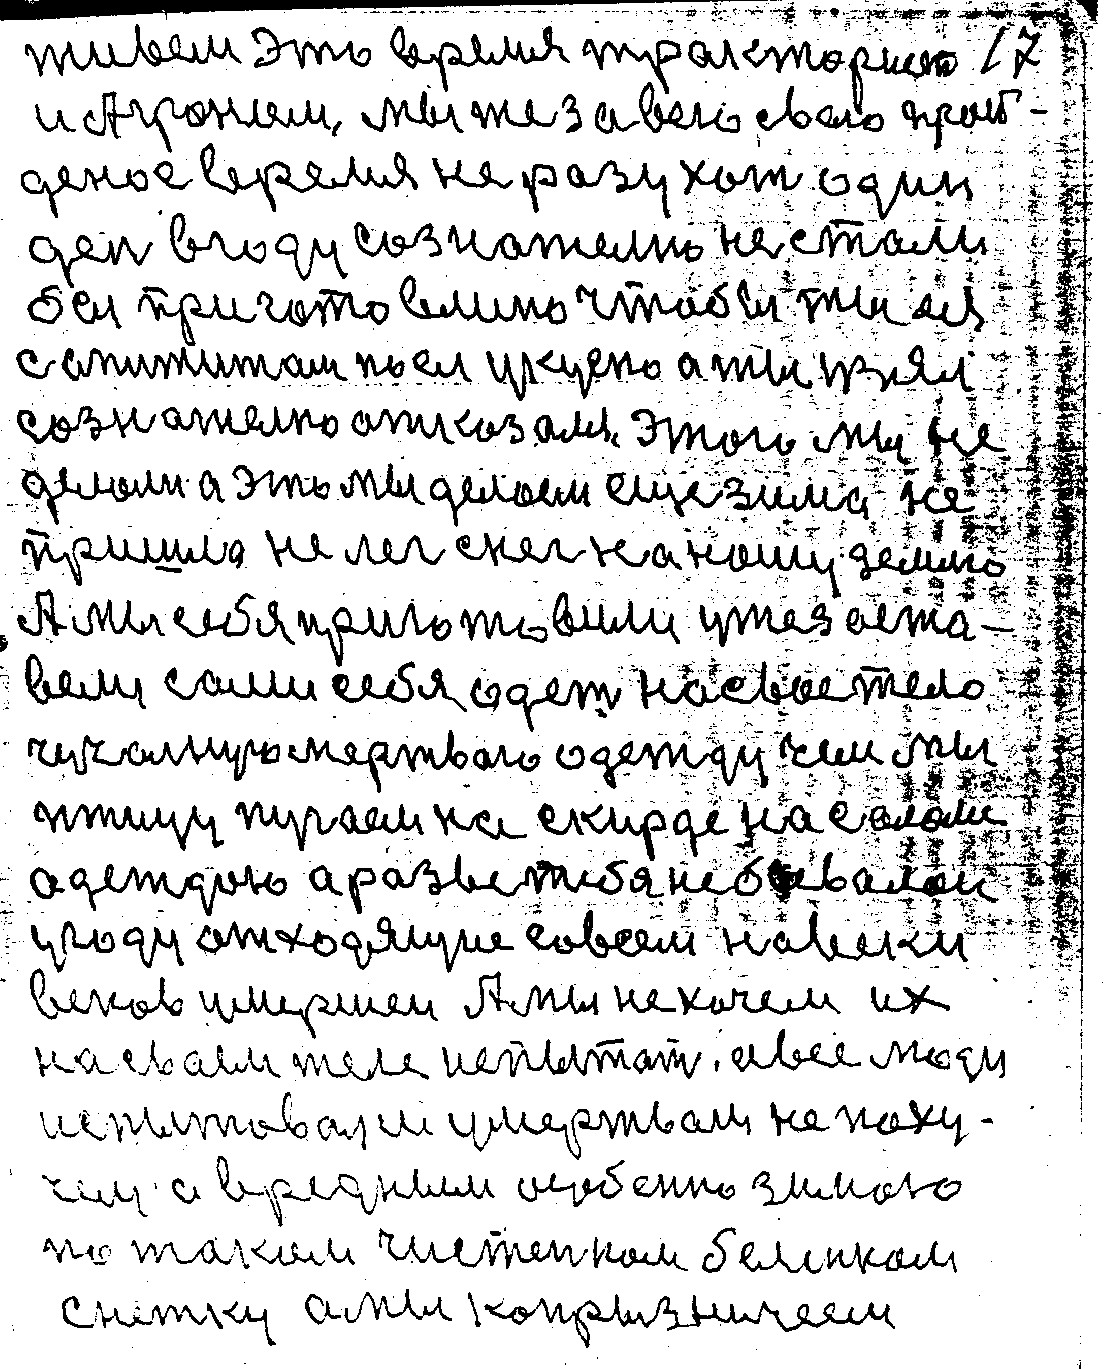 тивем это время тракторист 17
и Агроном, мы же за всю свою пройт-
деное время не разу хот один
ден вгоду сознателно не стали
бы приготовлино чтобы ты ея
сапититам поел укусно а ты взял
сознателно отказаля. Этого мы не
делали а это мы делаем еще зима не
пришла не лег снег на нашу землю
А мы себя приготовили уже заста-
вели сами себя одет на свое тело
чучалную мертваю одежду чем мы
птицу пугаем на скирде на саломе
адеждою а разве тибя не бывалои
угоду отходящие совсем навеки
веков умершеи А мы не хочем их
на сваем теле испытат. а все люди
испытовали умертвам не паху-
чем а вредным особенно зимою
по таком чистенком беленком
снежку а мы капрызничеем